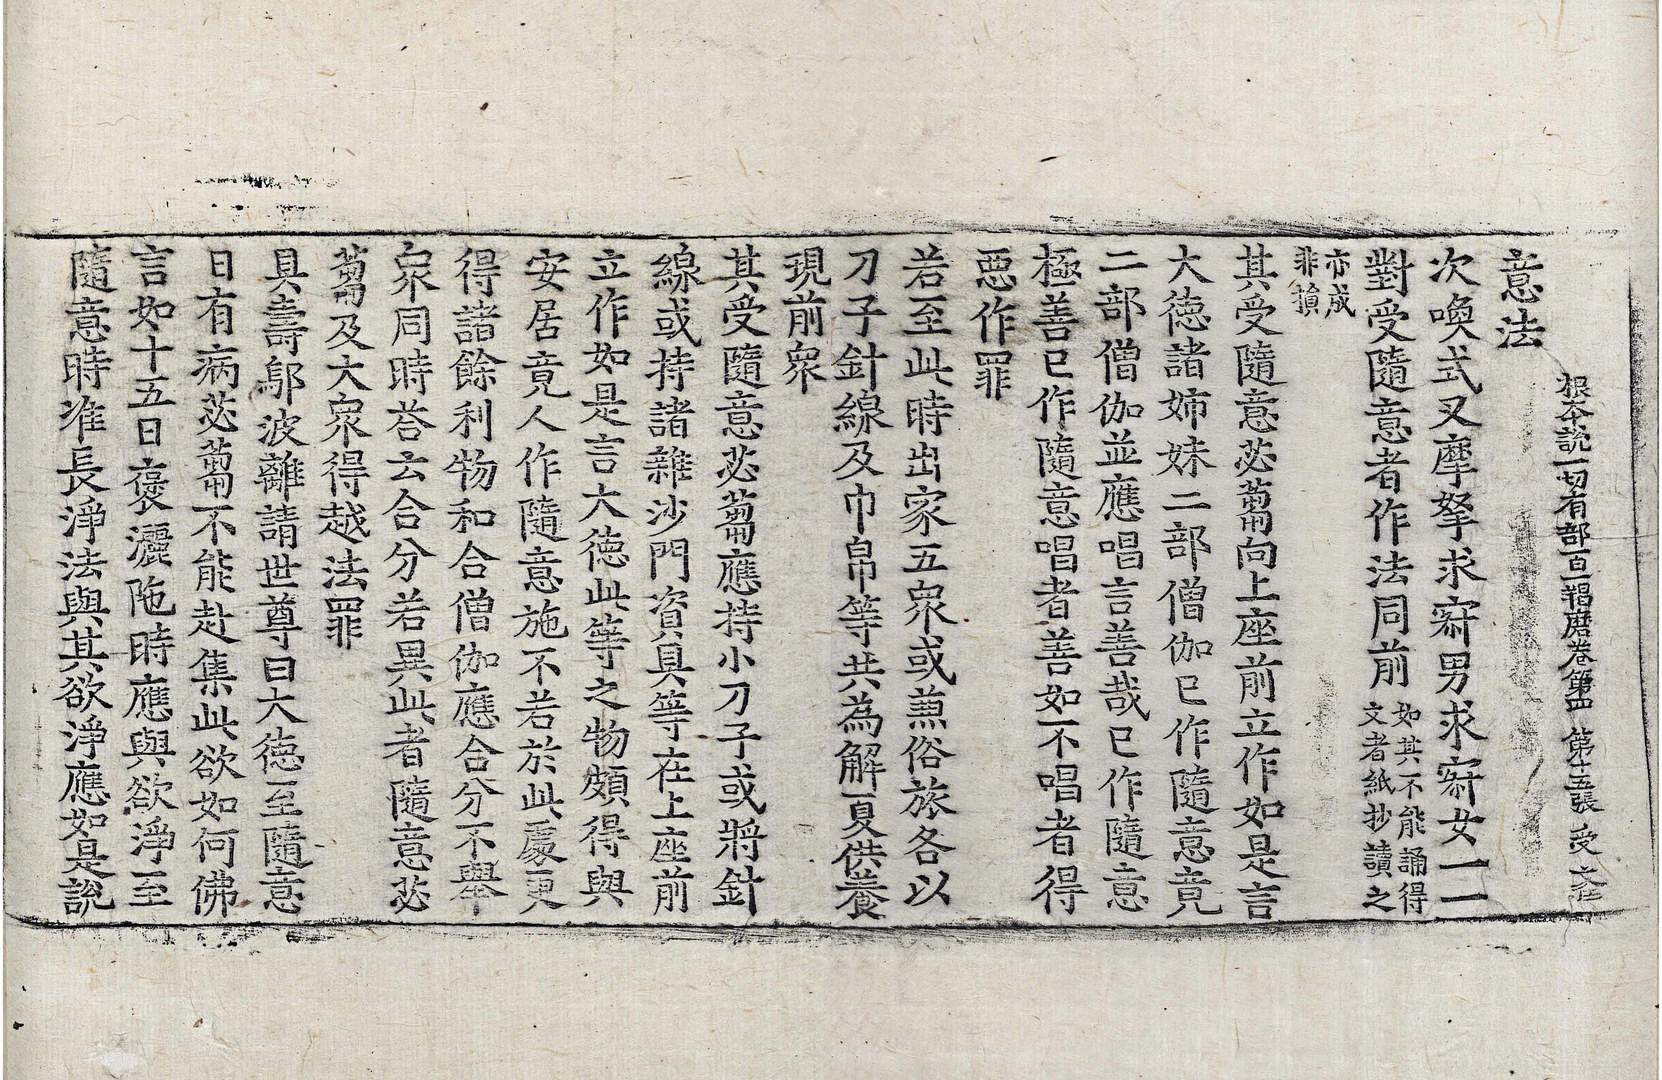 根本說一切有部百一羯磨卷第四 第十五張 受
意法
次喚式叉摩拏求寂男求寂女一一
對受隨意者作法同前如其不能誦得文者紙抄讀之
亦成非損
其受隨意苾蒭向上座前立作如是言
大德諸姉妹二部僧伽已作隨意竟
二部僧伽並應唱言善哉已作隨意
極善已作隨意唱者善如不唱者得
惡作罪
若至此時出家五衆或兼俗旅各以
刀子針線及巾帛等共為解夏供養
現前衆
其受隨意苾蒭應持小刀子或將針
線或持諸雜沙門資具等在上座前
立作如是言大德此等之物頗得與
安居竟人作隨意施不若於此處更
得諸餘利物和合僧伽應合分不舉
衆同時荅云合分若異此者隨意苾
蒭及大衆得越法罪
具壽鄔波離請世尊曰大德至隨意
日有病苾蒭不能赴集此欲如何佛
言如十五日褒灑陁時應與欲淨至
隨意時准長淨法與其欲淨應如是說